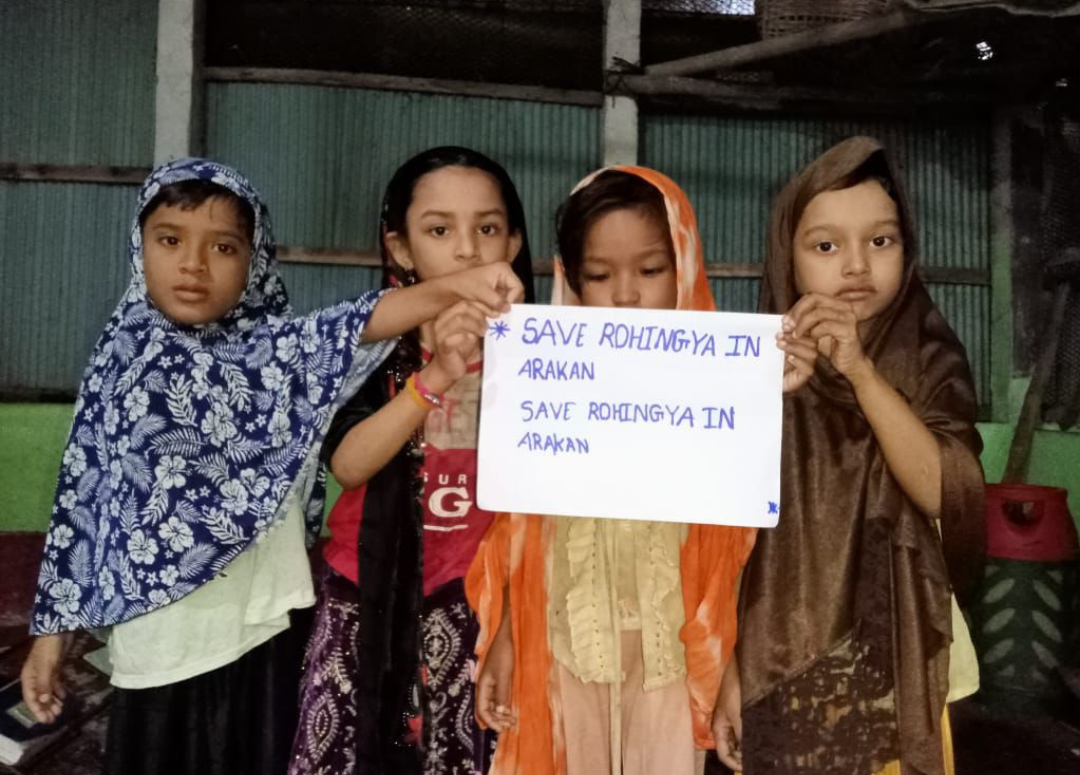 * SAVE ROHINGYA IN
ARAKAN
SAVE ROHINGYA IN
ARAKAN
*
SUR
G